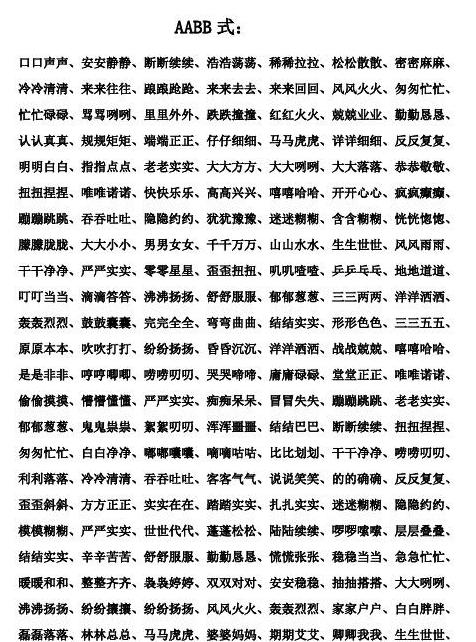 AABB 式：
口口声声、安安静静、断断续续、浩浩荡荡、稀稀拉拉、松松散散、密密麻麻、
冷冷清清、来来往往、踉踉跄跄、来来去去、来来回回、风风火火、匆匆忙忙、
忙忙碌碌、骂骂咧咧、里里外外、跌跌撞撞、红红火火、兢兢业业、勤勤恳恳、
认认真真、规规矩矩、端端正正、仔仔细细、马马虎虎、详详细细、反反复复、
明明白白、指指点点、老老实实、大大方方、大大咧咧、大大落落、恭恭敬敬、
扭扭捏捏、唯唯诺诺、快快乐乐、高高兴兴、嘻嘻哈哈、开开心心、疯疯癫癫、
蹦蹦跳跳、吞吞吐吐、隐隐约约、犹犹豫豫、迷迷糊糊、含含糊糊、恍恍惚惚、
朦朦胧胧、大大小小、男男女女、千千万万、山山水水、生生世世、风风雨雨、
干干净净、严严实实、零零星星、歪歪扭扭、叽叽喳喳、乒乒乓乓、地地道道、
叮叮当当、滴滴答答、沸沸扬扬、舒舒服服、郁郁葱葱、三三两两、洋洋洒洒、
轰轰烈烈、鼓鼓囊囊、完完全全、弯弯曲曲、结结实实、形形色色、三三五五、
原原本本、吹吹打打、纷纷扬扬、昏昏沉沉、洋洋洒洒、战战兢兢、嘻嘻哈哈、
是是非非、哼哼唧唧、唠唠叨叨、哭哭啼啼、庸庸碌碌、堂堂正正、唯唯诺诺、
偷偷摸摸、懵懵懂懂、严严实实、痴痴呆呆、冒冒失失、蹦蹦跳跳、老老实实、
郁郁葱葱、鬼鬼祟祟、絮絮叨叨、浑浑噩噩、结结巴巴、断断续续、扭扭捏捏、
匆匆忙忙、白白净净、嘟嘟囔囔、嘀嘀咕咕、比比划划、干干净净、唠唠叨叨、
利利落落、冷冷清清、吞吞吐吐、客客气气、说说笑笑、的的确确、反反复复、
歪歪斜斜、方方正正、实实在在、踏踏实实、扎扎实实、迷迷糊糊、隐隐约约、
模模糊糊、严严实实、世世代代、蓬蓬松松、陆陆续续、啰啰嗦嗦、层层叠叠、
结结实实、辛辛苦苦、舒舒服服、勤勤恳恳、慌慌张张、稳稳当当、急急忙忙、
暖暖和和、整整齐齐、袅袅婷婷、双双对对、安安稳稳、抽抽搭搭、大大咧咧、
沸沸扬扬、纷纷攘攘、纷纷扬扬、风风火火、轰轰烈烈、家家户户、白白胖胖、
磊磊落落、林林总总、马马虎虎、婆婆妈妈、期期艾艾、卿卿我我、生生世世、